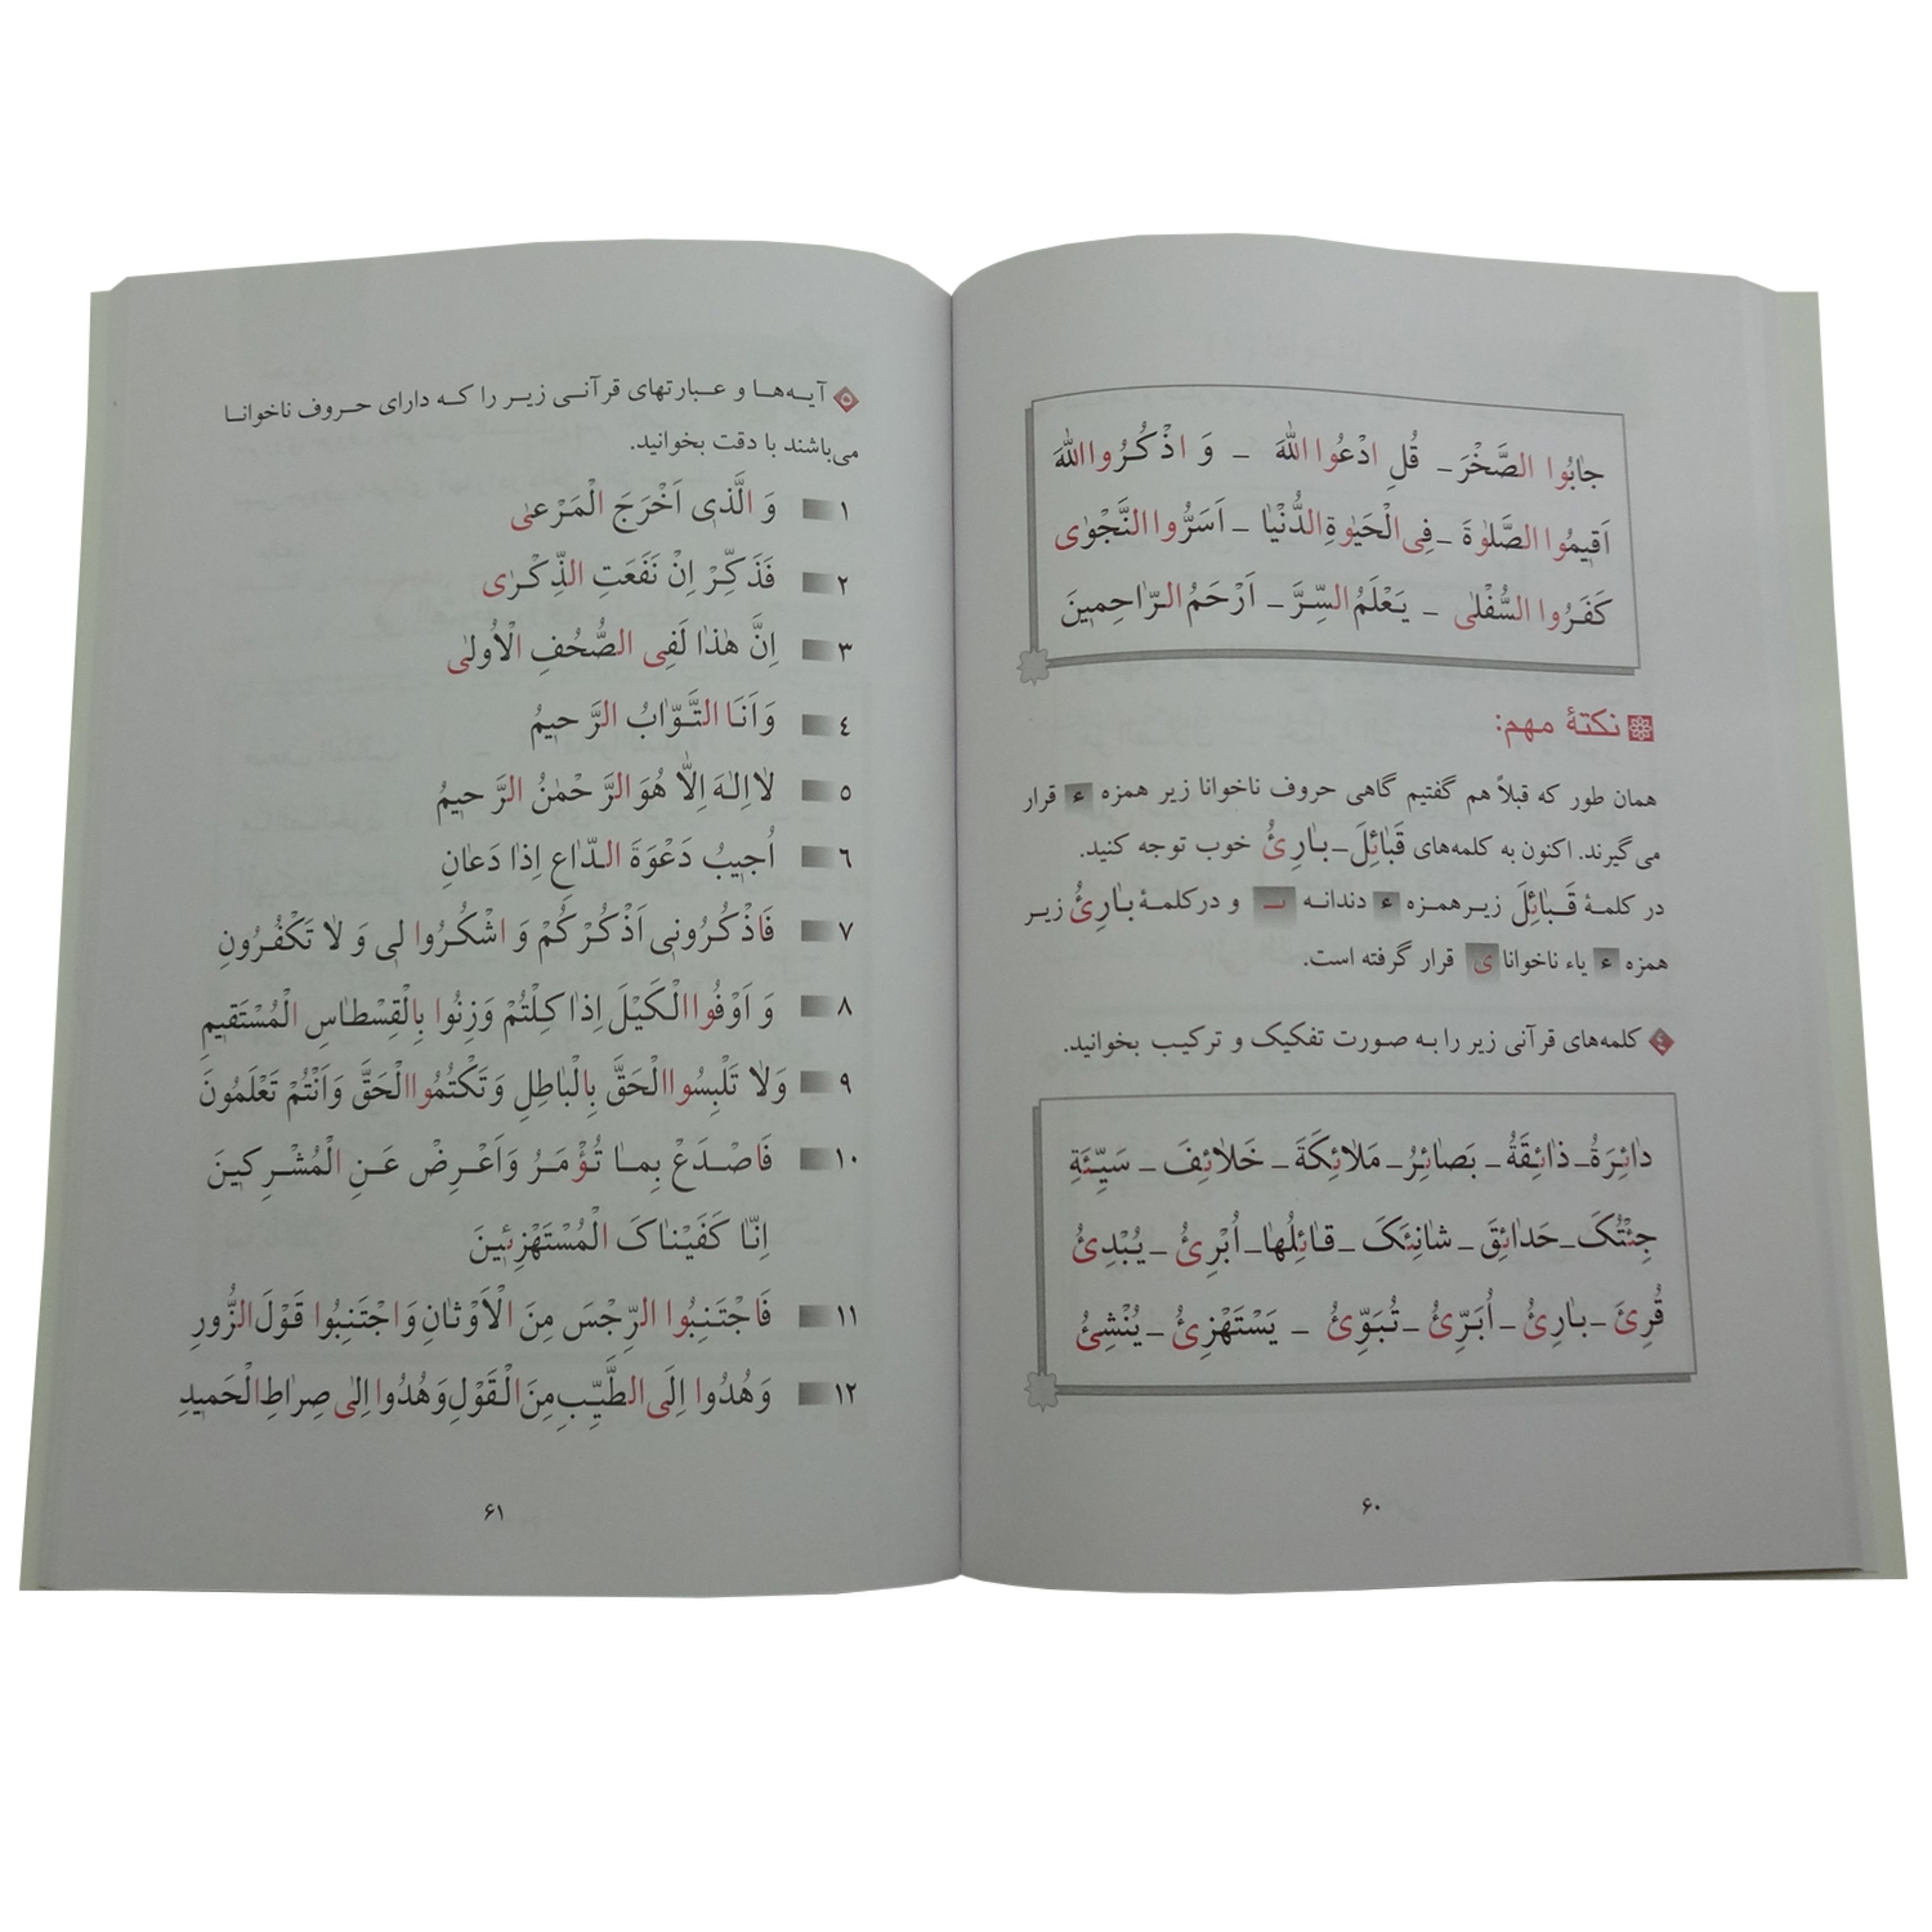 جابُوا الصَّخْرَ – قُلِ ادْعُوا اللّٰهَ – وَ اذْكُرُوا اللّٰهَ
اَقیمُوا الصَّلوٰةَ – فِی الْحَیٰوةِ الدُّنْیٰا – اَسَرُّوا النَّجْوٰی
كَفَرُوا السُّفْلیٰ – یَعْلَمُ السِّرَّ – اَرْحَمُ الرّٰاحِمینَ
نکتهٔ مهم:
همان طور که قبلاً هم گفتیم گاهی حروف ناخوانا زیر همزه ء قرار
می‌گیرند. اکنون به کلمه‌های قَبٰائِلَ – بٰارِئُ خوب توجه کنید.
در کلمهٔ قَبٰائِلَ زیر همزه ء دندانه ـئـ و در کلمهٔ بٰارِئُ زیر
همزه ء یاء ناخوانا ی قرار گرفته است.
٤ کلمه‌های قرآنی زیر را به صورت تفکیک و ترکیب بخوانید.
دٰائِرَةُ – ذٰائِقَةُ – بَصٰائِرُ – مَلٰائِکَةَ – خَلٰائِفَ – سَیِّئَةِ
جِئْتُکَ – حَدٰائِقَ – شٰانِئَکَ – قٰائِلُهٰا – اُبْرِئُ – یُبْدِئُ
قُرِئَ – بٰارِئُ – اُبَرِّئُ – تُبَوِّئُ – یَسْتَهْزِئُ – یُنْشِئُ
۶۰
٥ آیه‌ها و عبارتهای قرآنی زیر را که دارای حروف ناخوانا
می‌باشند با دقت بخوانید.
١ وَ الَّذی اَخْرَجَ الْمَرْعیٰ
٢ فَذَکِّرْ اِنْ نَفَعَتِ الذِّکْرٰی
٣ اِنَّ هٰذٰا لَفِی الصُّحُفِ الْاُولیٰ
٤ وَ اَنَا التَّوّٰابُ الرَّحیمُ
٥ لٰا اِلٰهَ اِلّٰا هُوَ الرَّحْمٰنُ الرَّحیمُ
٦ اُجیبُ دَعْوَةَ الدّٰاعِ اِذٰا دَعٰانِ
٧ فَاذْکُرُونی اَذْکُرْکُمْ وَ اشْکُرُوا لی وَ لٰا تَکْفُرُونِ
٨ وَ اَوْفُوا الْکَیْلَ اِذٰا کِلْتُمْ وَزِنُوا بِالْقِسْطٰاسِ الْمُسْتَقیمِ
٩ وَلٰا تَلْبِسُوا الْحَقَّ بِالْبٰاطِلِ وَ تَکْتُمُوا الْحَقَّ وَ اَنْتُمْ تَعْلَمُونَ
١٠ فَاصْدَعْ بِمٰا تُؤْمَرُ وَ اَعْرِضْ عَنِ الْمُشْرِکینَ
اِنّٰا کَفَیْنٰاکَ الْمُسْتَهْزِئینَ
١١ فَاجْتَنِبُوا الرِّجْسَ مِنَ الْاَوْثٰانِ وَ اجْتَنِبُوا قَوْلَ الزُّورِ
١٢ وَ هُدُوا اِلَی الطَّیِّبِ مِنَ الْقَوْلِ وَ هُدُوا اِلیٰ صِرٰاطِ الْحَمیدِ
۶۱